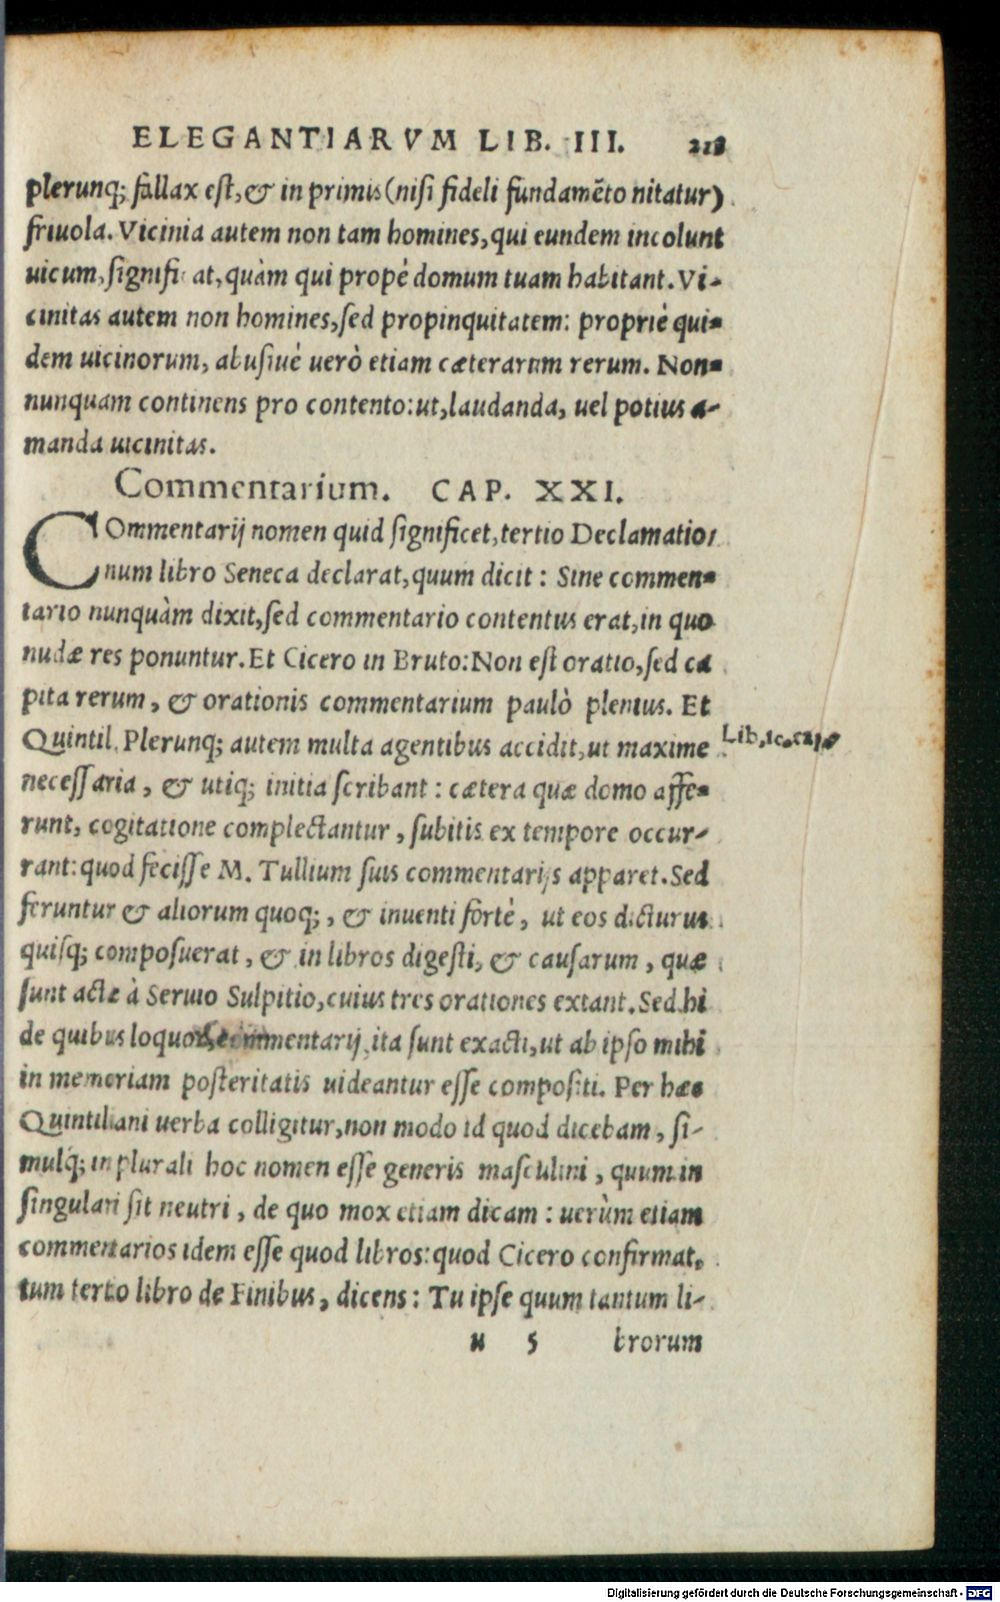 ELEGANTIARVM LIB. III. 218
plerunq; fallax est, & in primis (nisi fideli fundamẽto nitatur)
friuola. Vicinia autem non tam homines, qui eundem incolunt
uicum, signifi at, quàm qui propè domum tuam habitant. Vi-
cinitas autem non homines, sed propinquitatem: propriè qui-
dem uicinorum, abusiuè uerò etiam cæterarum rerum. Non-
nunquam continens pro contento: ut, laudanda, uel potius a-
manda uicinitas.
Commentarium. CAP. XXI.
COmmentarij nomen quid significet, tertio Declamatio-
num libro Seneca declarat, quum dicit: Sine commen-
tario nunquàm dixit, sed commentario contentus erat, in quo
nudæ res ponuntur. Et Cicero in Bruto: Non est oratio, sed ca
pita rerum, & orationis commentarium paulò plenius. Et
Quintil. Plerunq; autem multa agentibus accidit, ut maxime
Lib. 10. cap.
necessaria, & utiq; initia scribant: cætera quæ domo affe-
runt, cogitatione complectantur, subitis ex tempore occur-
rant: quod fecisse M. Tullium suis commentarijs apparet. Sed
feruntur & aliorum quoq;, & inuenti fortè, ut eos dicturus
quisq; composuerat, & in libros digesti, & causarum, quæ
sunt actæ à Seruio Sulpitio, cuius tres orationes extant. Sed hi
de quibus loquor, commentarij, ita sunt exacti, ut ab ipso mihi
in memoriam posteritatis uideantur esse compositi. Per hæc
Quintiliani uerba colligitur, non modo id quod dicebam, si-
mulq́; in plurali hoc nomen esse generis masculini, quum in
singulari sit neutri, de quo mox etiam dicam: uerùm etiam
commentarios idem esse quod libros: quod Cicero confirmat,
tum tertio libro de Finibus, dicens: Tu ipse quum tantum li-
N 5 brorum
Digitalisierung gefördert durch die Deutsche Forschungsgemeinschaft - DFG